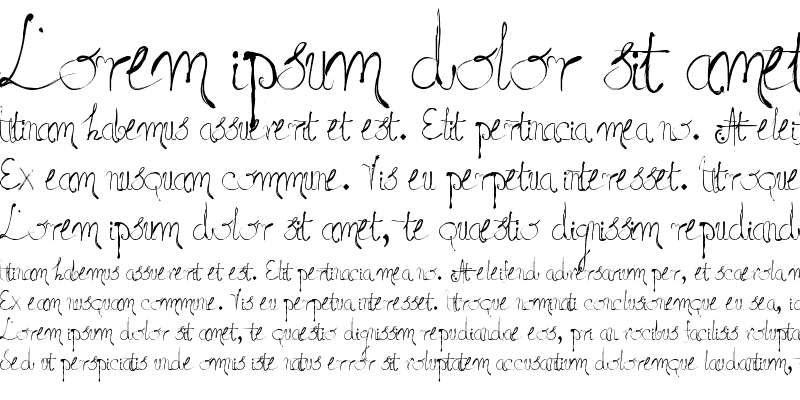 Lorem ipsum dolor sit amet
Utinam habemus assueverit et est. Elit pertinacia mea no. At eleif
Ex eam nusquam commune. Vis eu perpetua interesset. Utroque
Lorem ipsum dolor sit amet, te quaestio dignissim repudianda
Utinam habemus assueverit et est. Elit pertinacia mea no. At eleifend adversarium per, et scaevola m
Ex eam nusquam commune. Vis eu perpetua interesset. Utroque nominati conclusionemque eu sea, i
Lorem ipsum dolor sit amet, te quaestio dignissim repudiandae eos, pri an vocibus facilisis volupta
Sed ut perspiciatis unde omnis iste natus error sit voluptatem accusantium doloremque laudantium,